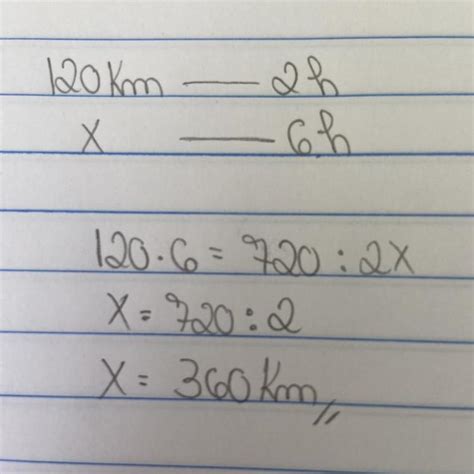 120Km — 2h
x — 6h
120.6 = 720 : 2x
x = 720 : 2
x = 360Km //